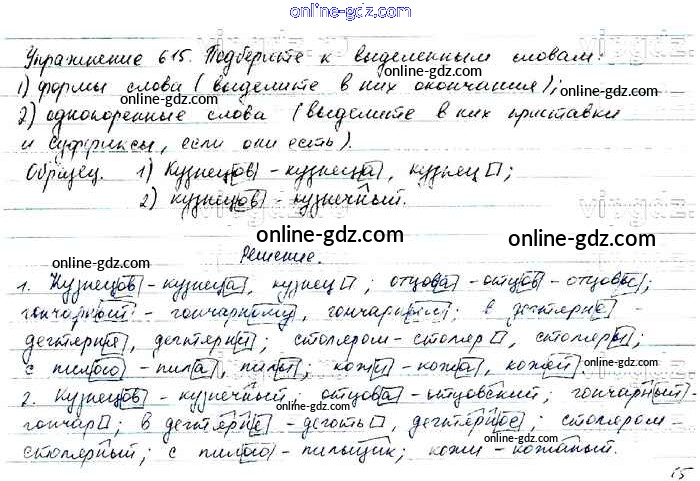 online-gdz.com
Упражнение 615. Подберите к выделенным словам:
1) формы слова (выделите в них окончания);
2) однокоренные слова (выделите в них приставки
и суффиксы, если они есть).
Образец. 1) Кузнецов - кузнеца, кузнец;
2) кузнецов - кузнечный.
Решение.
1. Кузнецов - кузнеца, кузнец; отцова - отцов - отцовы;
гончарный - гончарному, гончарным; в дегтярне -
дегтярня, дегтярни; столяром - столяр, столяры;
с пилою - пила, пилы; кожи - кожа, кожей
2. Кузнецов - кузнечный; отцова - отцовский; гончарный -
гончар; в дегтярне - деготь, дегтярное; столяром -
столярный; с пилою - пильщик; кожи - кожаный.
15